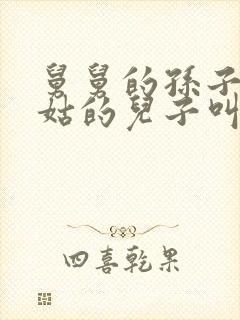 舅舅的孫子
姑的兒子叫
四喜乾果